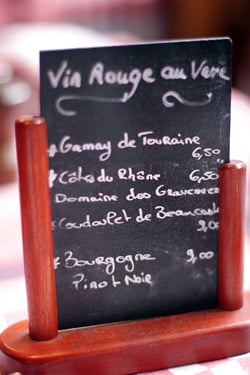 Vin Rouge au Verre
Gamay de Touraine
6,50
Côtes du Rhône 6,50
Domaine des
Coudoulet de Beaucastel
9,00
Bourgogne 9,00
Pinot Noir